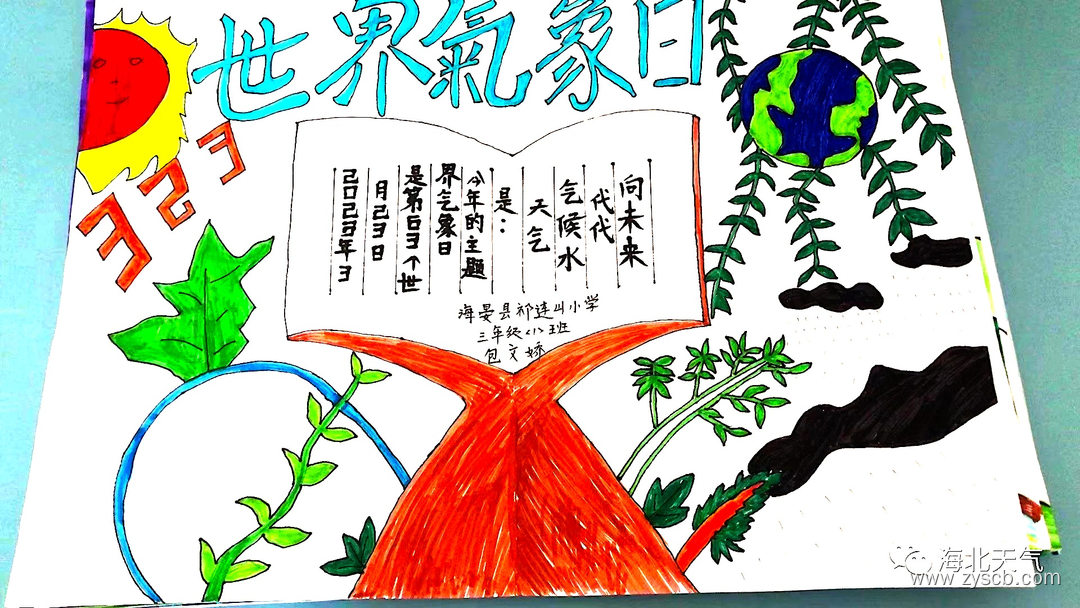 世界氣象日
323
2023年3
月23日
是第63个世
界气象日
今年的主题
是：
天气
气候水
代代
向未来
海晏县祁连山小学
三年级<1>班
包文娇
海北天气
www.zyscb.com